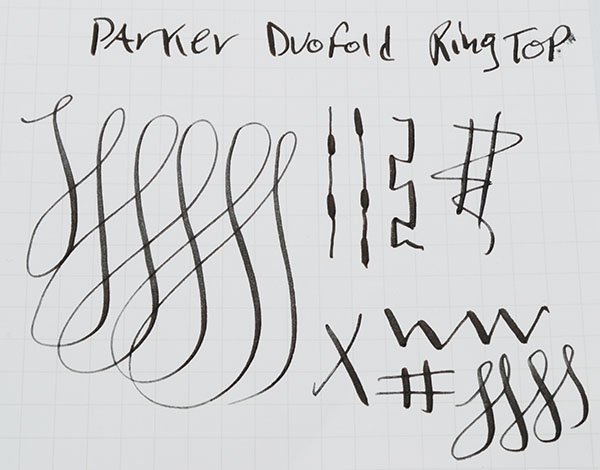 Parker Duofold Ring Top
X
#